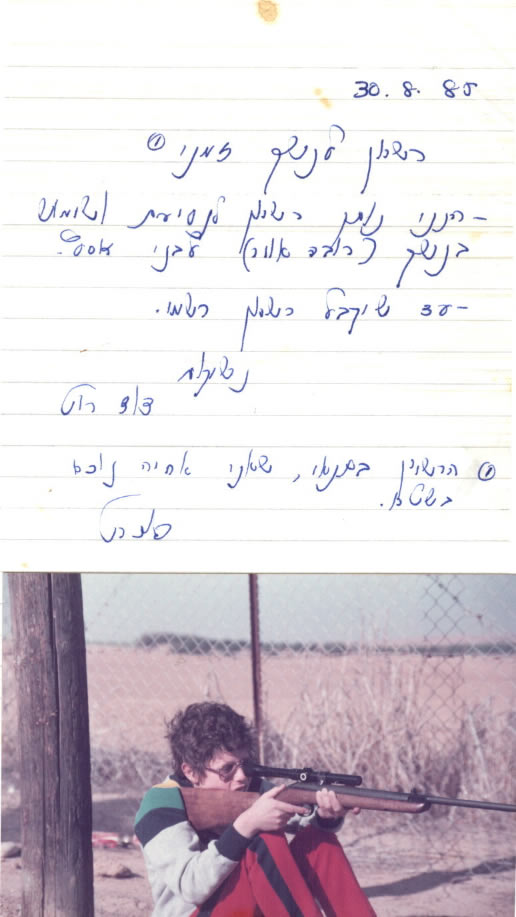 30.8.85
רשיון לנשק זמני ①
- הנני נותן רשיון לנסיעה ושימוש
בנשק (רובה אוויר) לבני אסף.
- עד שיקבל רשיון רשמי.
נשיקות
דוד רוט
① הרשיון בתנאי, שאני אהיה נוכח
בשטח.